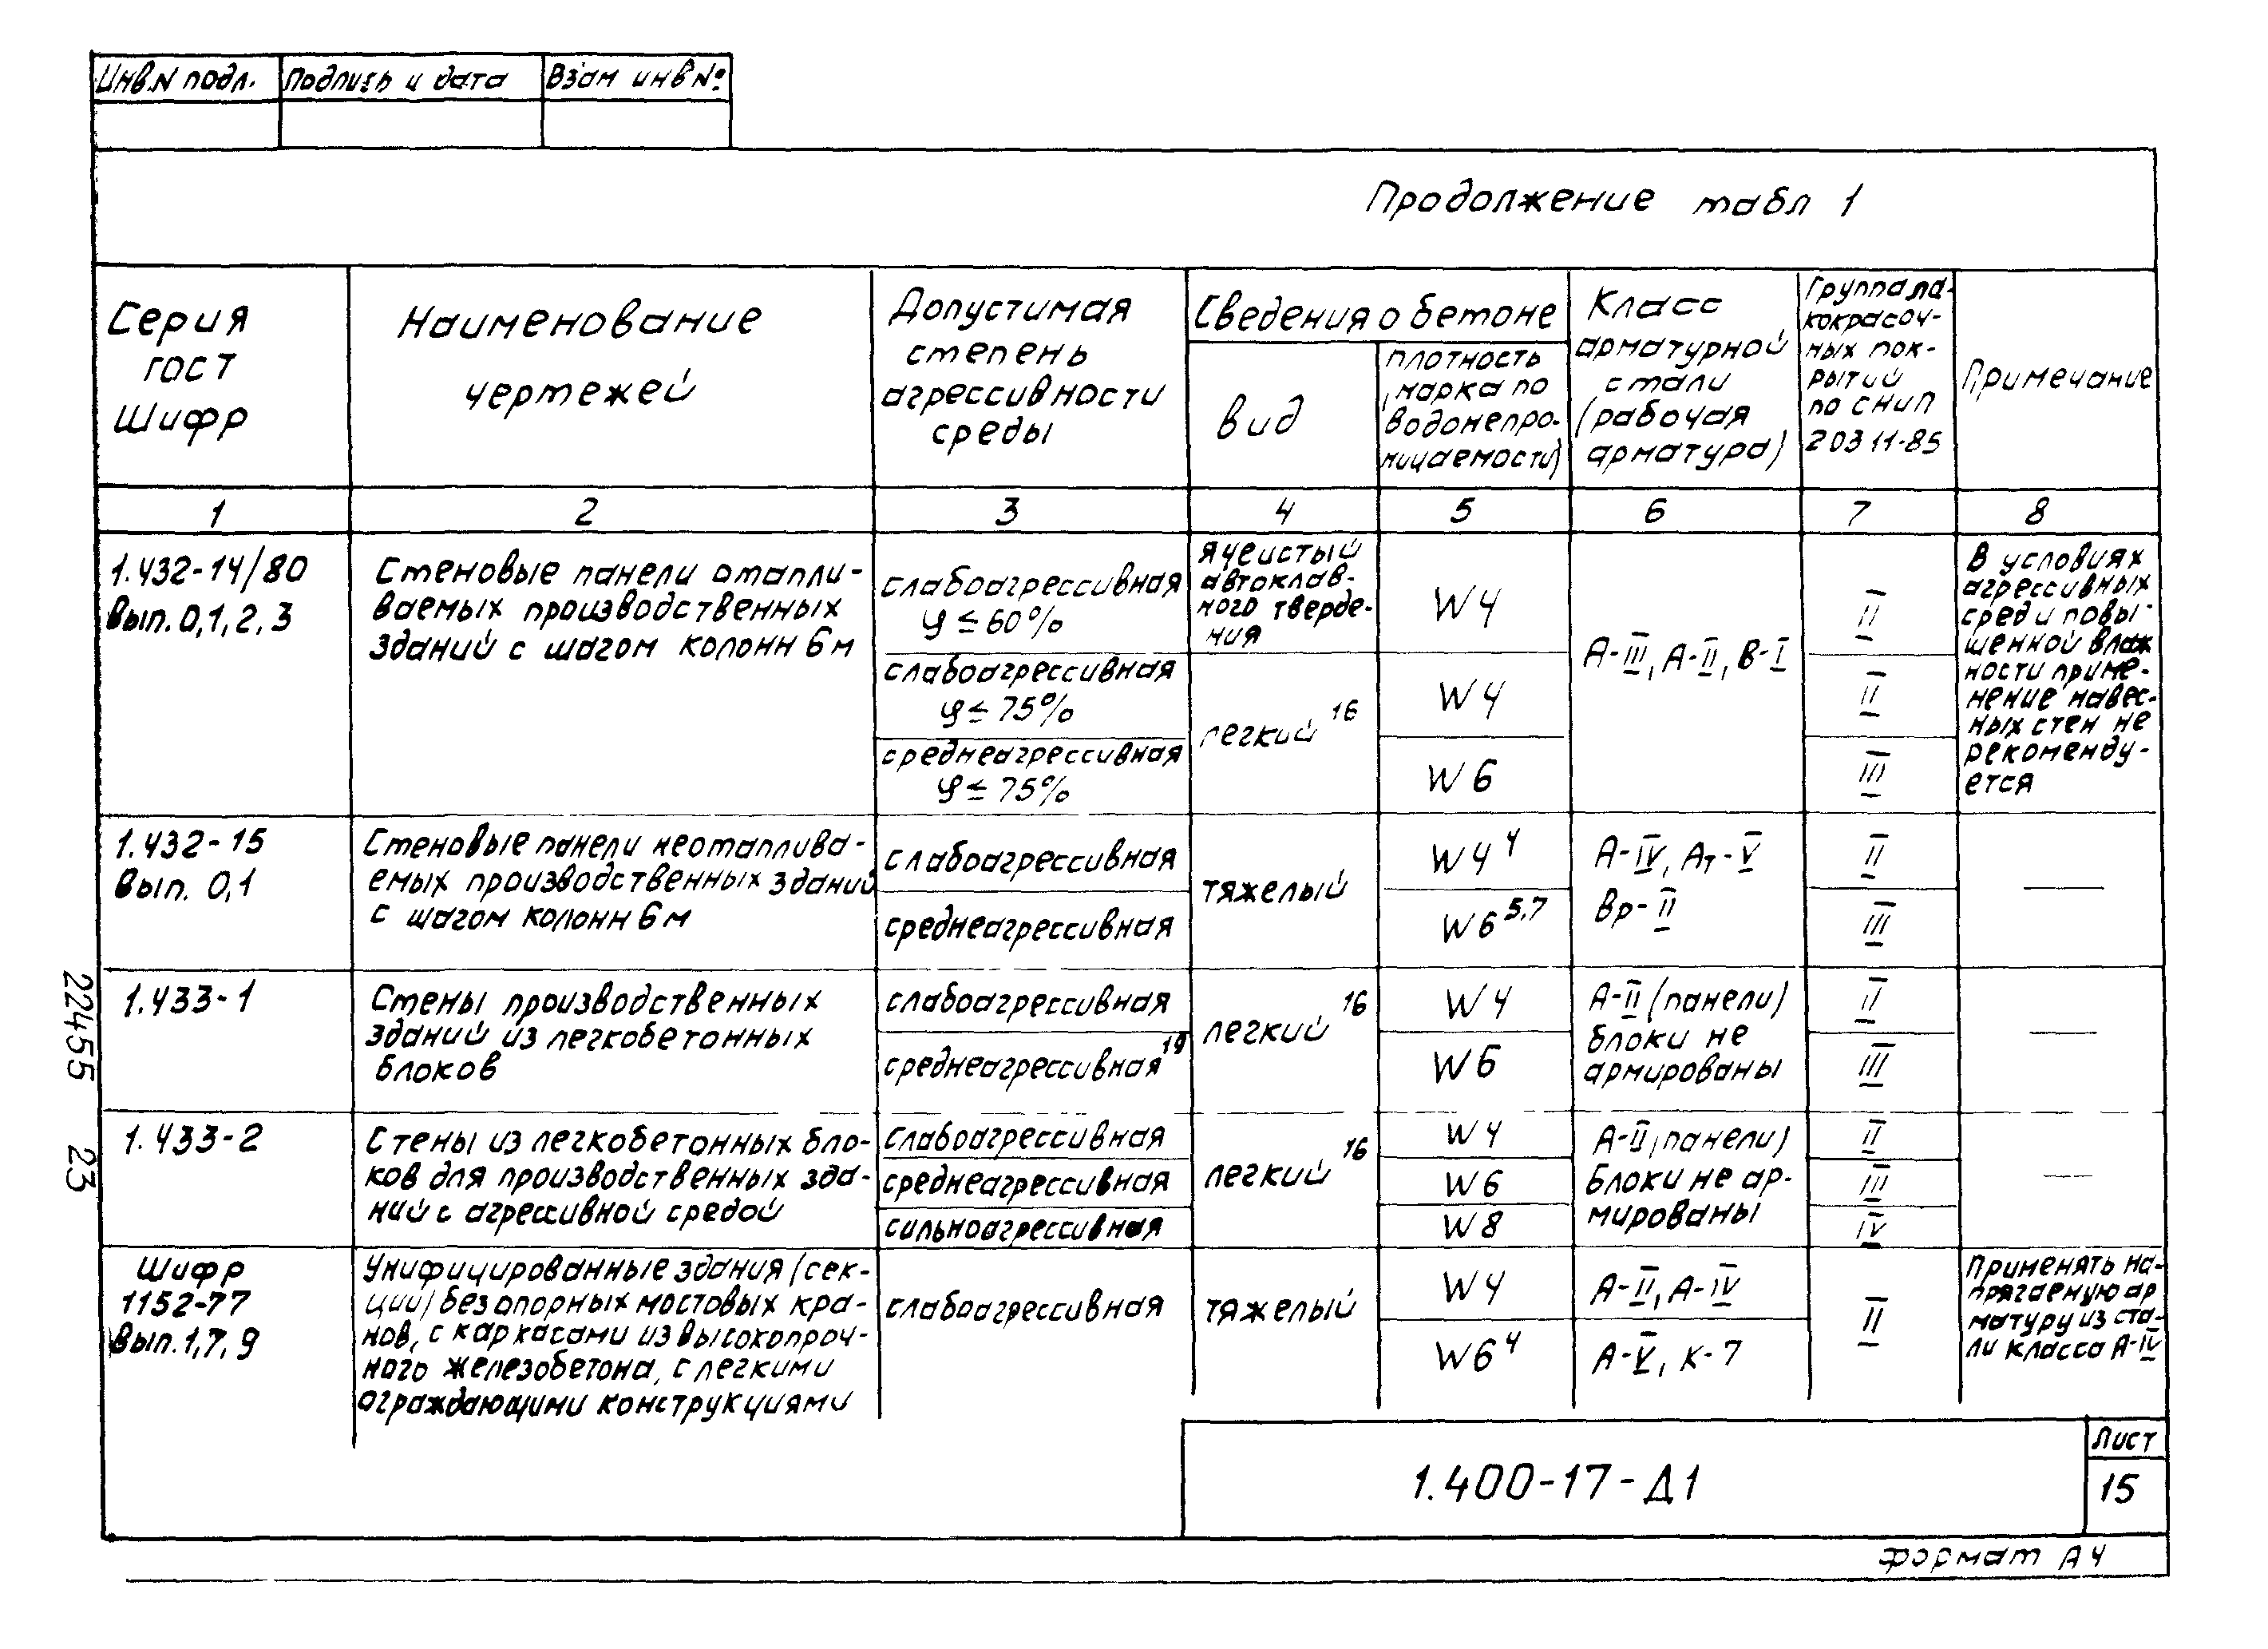 Инв.N подл. Подпись и дата Взам инв №
Продолжение табл 1
Серия
гост
Шифр
Наименование
чертежей
Допустимая
степень
агрессивности
среды
Сведения о бетоне
вид
плотность
(марка по
водонепро-
ницаемости)
Класс
арматурной
стали
(рабочая
арматура)
Группа ла-
кокрасоч-
ных пок-
рытий
по СНиП
2 03 11-85
Примечание
1 2 3 4 5 6 7 8
1.432-14/80
Вып. 0,1, 2, 3
Стеновые панели отапли-
ваемых производственных
зданий с шагом колонн 6 м
слабоагрессивная
φ ≤ 60%
ячеистый
автоклав-
ного тверде-
ния
W4
А-III, А-II, В-I
II
слабоагрессивная
φ ≤ 75%
легкий 16
W4
II
среднеагрессивная
φ ≤ 75%
W6
III
В условиях
агрессивных
сред и повы-
шенной влаж
ности приме-
нение навес-
ных стен не
рекоменду-
ется
1.432-15
Вып. 0,1
Стеновые панели неотаплива-
емых производственных зданий
с шагом колонн 6 м
слабоагрессивная
среднеагрессивная
тяжелый
W4 4
W6 5,7
А-IV, Ат-V
Вр-II
II
III
—
1.433-1
Стены производственных
зданий из легкобетонных
блоков
слабоагрессивная
среднеагрессивная 19
легкий 16
W4
W6
А-II (панели)
блоки не
армированы
II
III
—
1.433-2
Стены из легкобетонных бло-
ков для производственных зда-
ний с агрессивной средой
слабоагрессивная
среднеагрессивная
сильноагрессивная
легкий 16
W4
W6
W8
А-II (панели)
Блоки не ар-
мированы
II
III
IV
—
Шифр
1152-77
Вып. 1, 7, 9
Унифицированные здания (сек-
ции) без опорных мостовых кра-
нов, с каркасами из высокопроч-
ного железобетона, с легкими
ограждающими конструкциями
слабоагрессивная
тяжелый
W4
W6 4
А-II, А-IV
А-V, К-7
II
Применять на-
прягаемую ар
матуру из ста-
ли класса А-IV
22455 23
1.400-17-Д1
Лист
15
формат А4